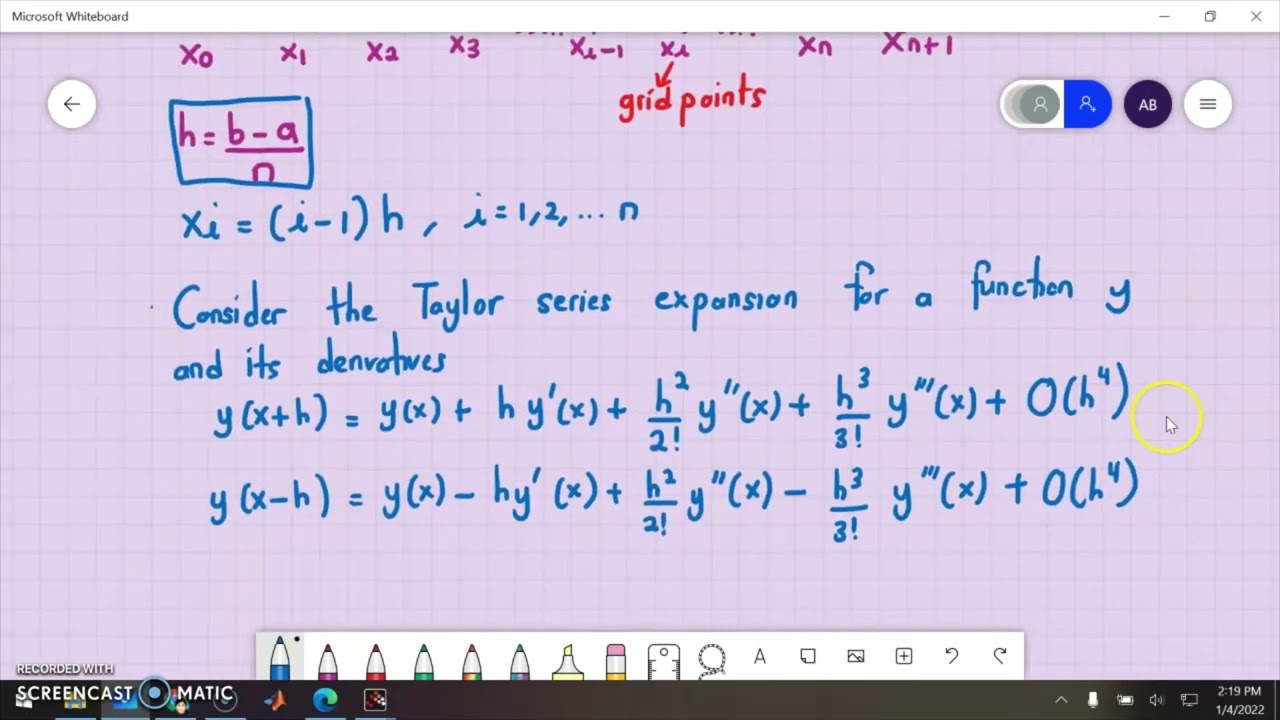 Microsoft Whiteboard
x0 x1 x2 x3 xi-1 xi xn xn+1
grid points
AB
h = (b - a)/n
xi = (i-1)h , i = 1,2, ... n
Consider the Taylor series expansion for a function y
and its derivatives
y(x+h) = y(x) + hy'(x) + h²/2! y''(x) + h³/3! y'''(x) + O(h⁴)
y(x-h) = y(x) - hy'(x) + h²/2! y''(x) - h³/3! y'''(x) + O(h⁴)
A
RECORDED WITH
SCREENCAST MATIC
2:19 PM
1/4/2022